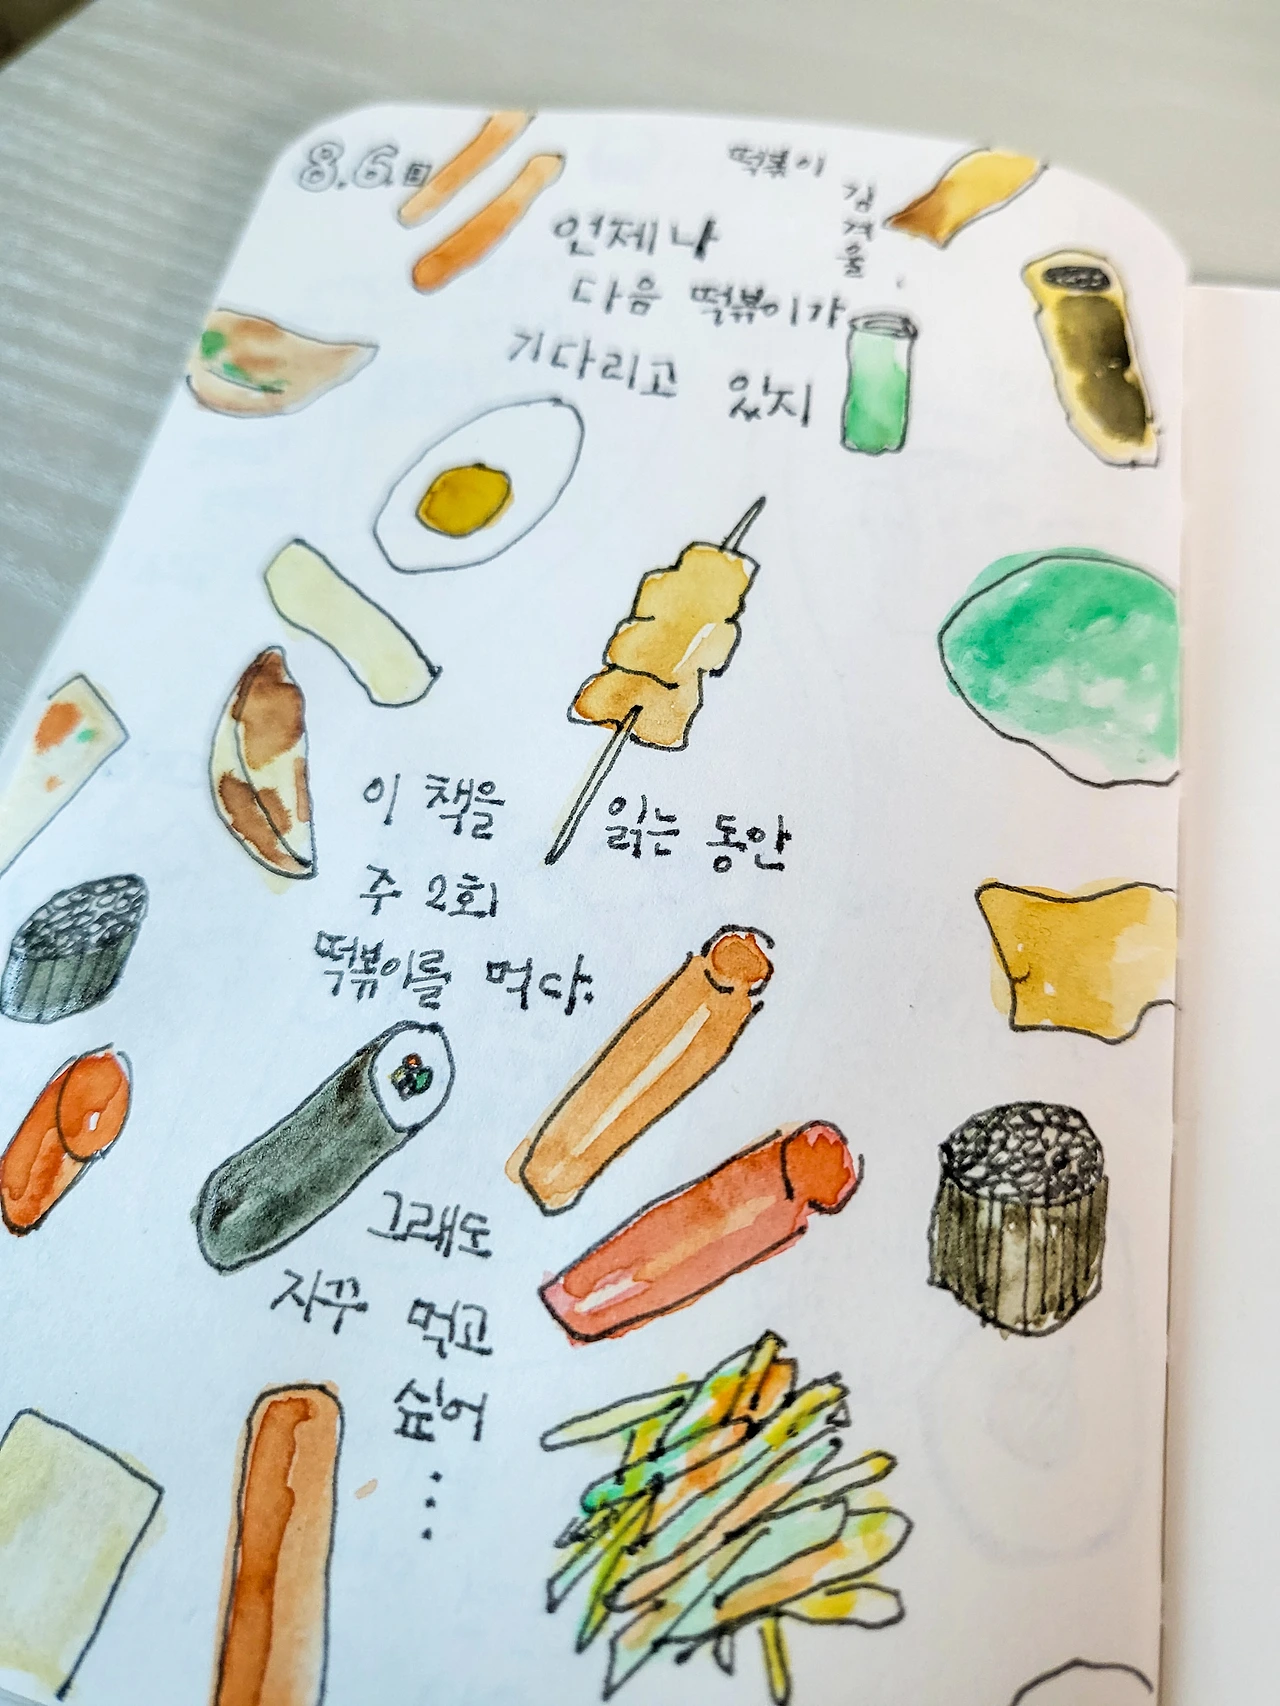 8.6.日
떡볶이
김겨울
언제나
다음 떡볶이가
기다리고 있지
이 책을 읽는 동안
주 2회
떡볶이를 먹다.
그래도
자꾸 먹고
싶어
...